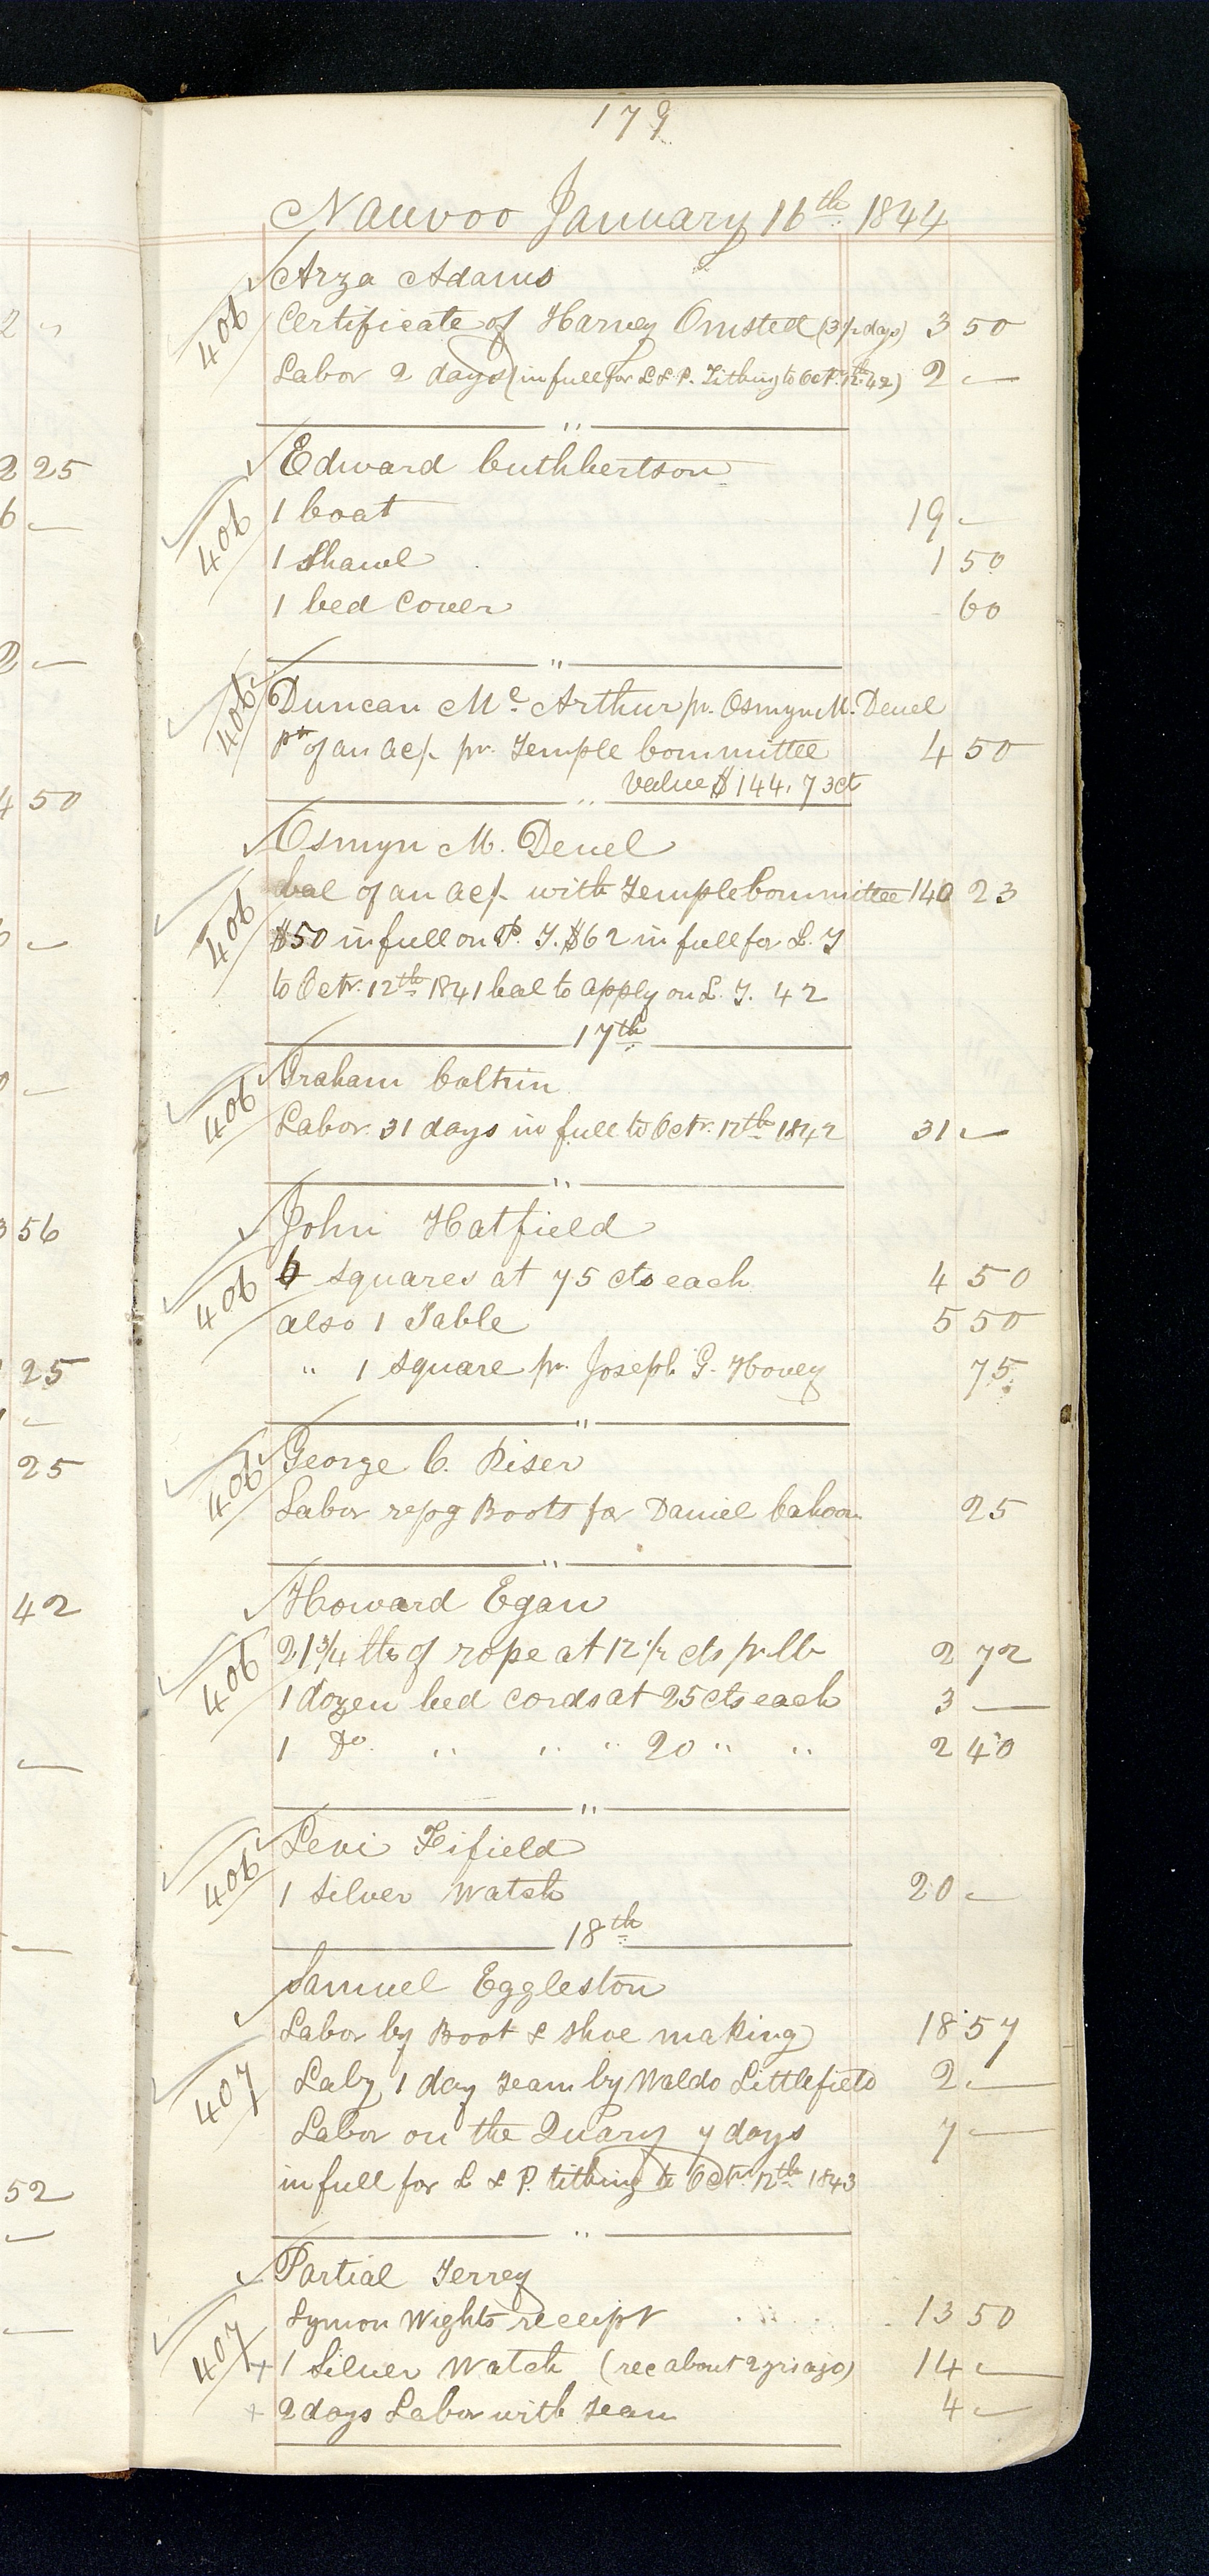 179
Nauvoo January 16th 1844
Arza Adams
406 Certificate of Harvey Omsted (3 1/2 days) 3 50
Labor 2 days (in full for L & P. Tithing to Oct. 12th 42) 2 —
"
Edward Cuthbertson
406 1 Coat 19 —
1 Shawl 1 50
1 bed Cover 60
"
406 Duncan Mc. Arthur pr. Osmyn M. Deuel
pt of an ac/. pr. Temple Committee 4 50
Value $144,73ct
"
Osmyn M. Deuel
406 bal of an ac/. with Temple Committee 140 23
$50 in full on P. T. $62 in full for L. T
to Octr. 12th 1841 bal to apply on L. T. 42
17th
Graham Coltrin
406 Labor 31 days in full to Octr. 12th 1842 31 —
"
John Hatfield
406 6 squares at 75 cts each 4 50
also 1 Table 5 50
" 1 square pr. Joseph G. Hovey 75
"
George C. Riser
406 Labor repg Boots for Daniel Cahoon 25
"
Howard Egan
406 21 3/4 lbs of rope at 12 1/2 cts pr lb 2 72
1 dozen bed cords at 25 cts each 3 —
1 Do. " " " 20 " " 2 40
"
Levi Fifield
406 1 Silver Watch 20 —
18th
Samuel Eggleston
Labor by Boot & Shoe making 18 57
407 Labr, 1 day Team by Waldo Littlefield 2 —
Labor on the Quary 7 days 7 —
in full for L & P. tithing to Octr. 12th 1843
"
Partial Terrey
Lymon Wights receipt 13 50
407 + 1 Silver Watch (rec about 2 yrs ago) 14 —
+ 2 days Labor with Team 4 —
2 "
2 25
6 —
2 —
4 50
—
0 —
3 56
25
—
25
42
—
—
52
—
—